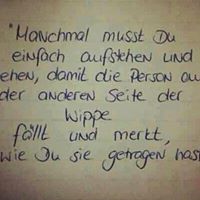 "Manchmal musst Du
einfach aufstehen und
ehen, damit die Person au
der anderen Seite der
Wippe
fällt und merkt,
wie Du sie getragen hast